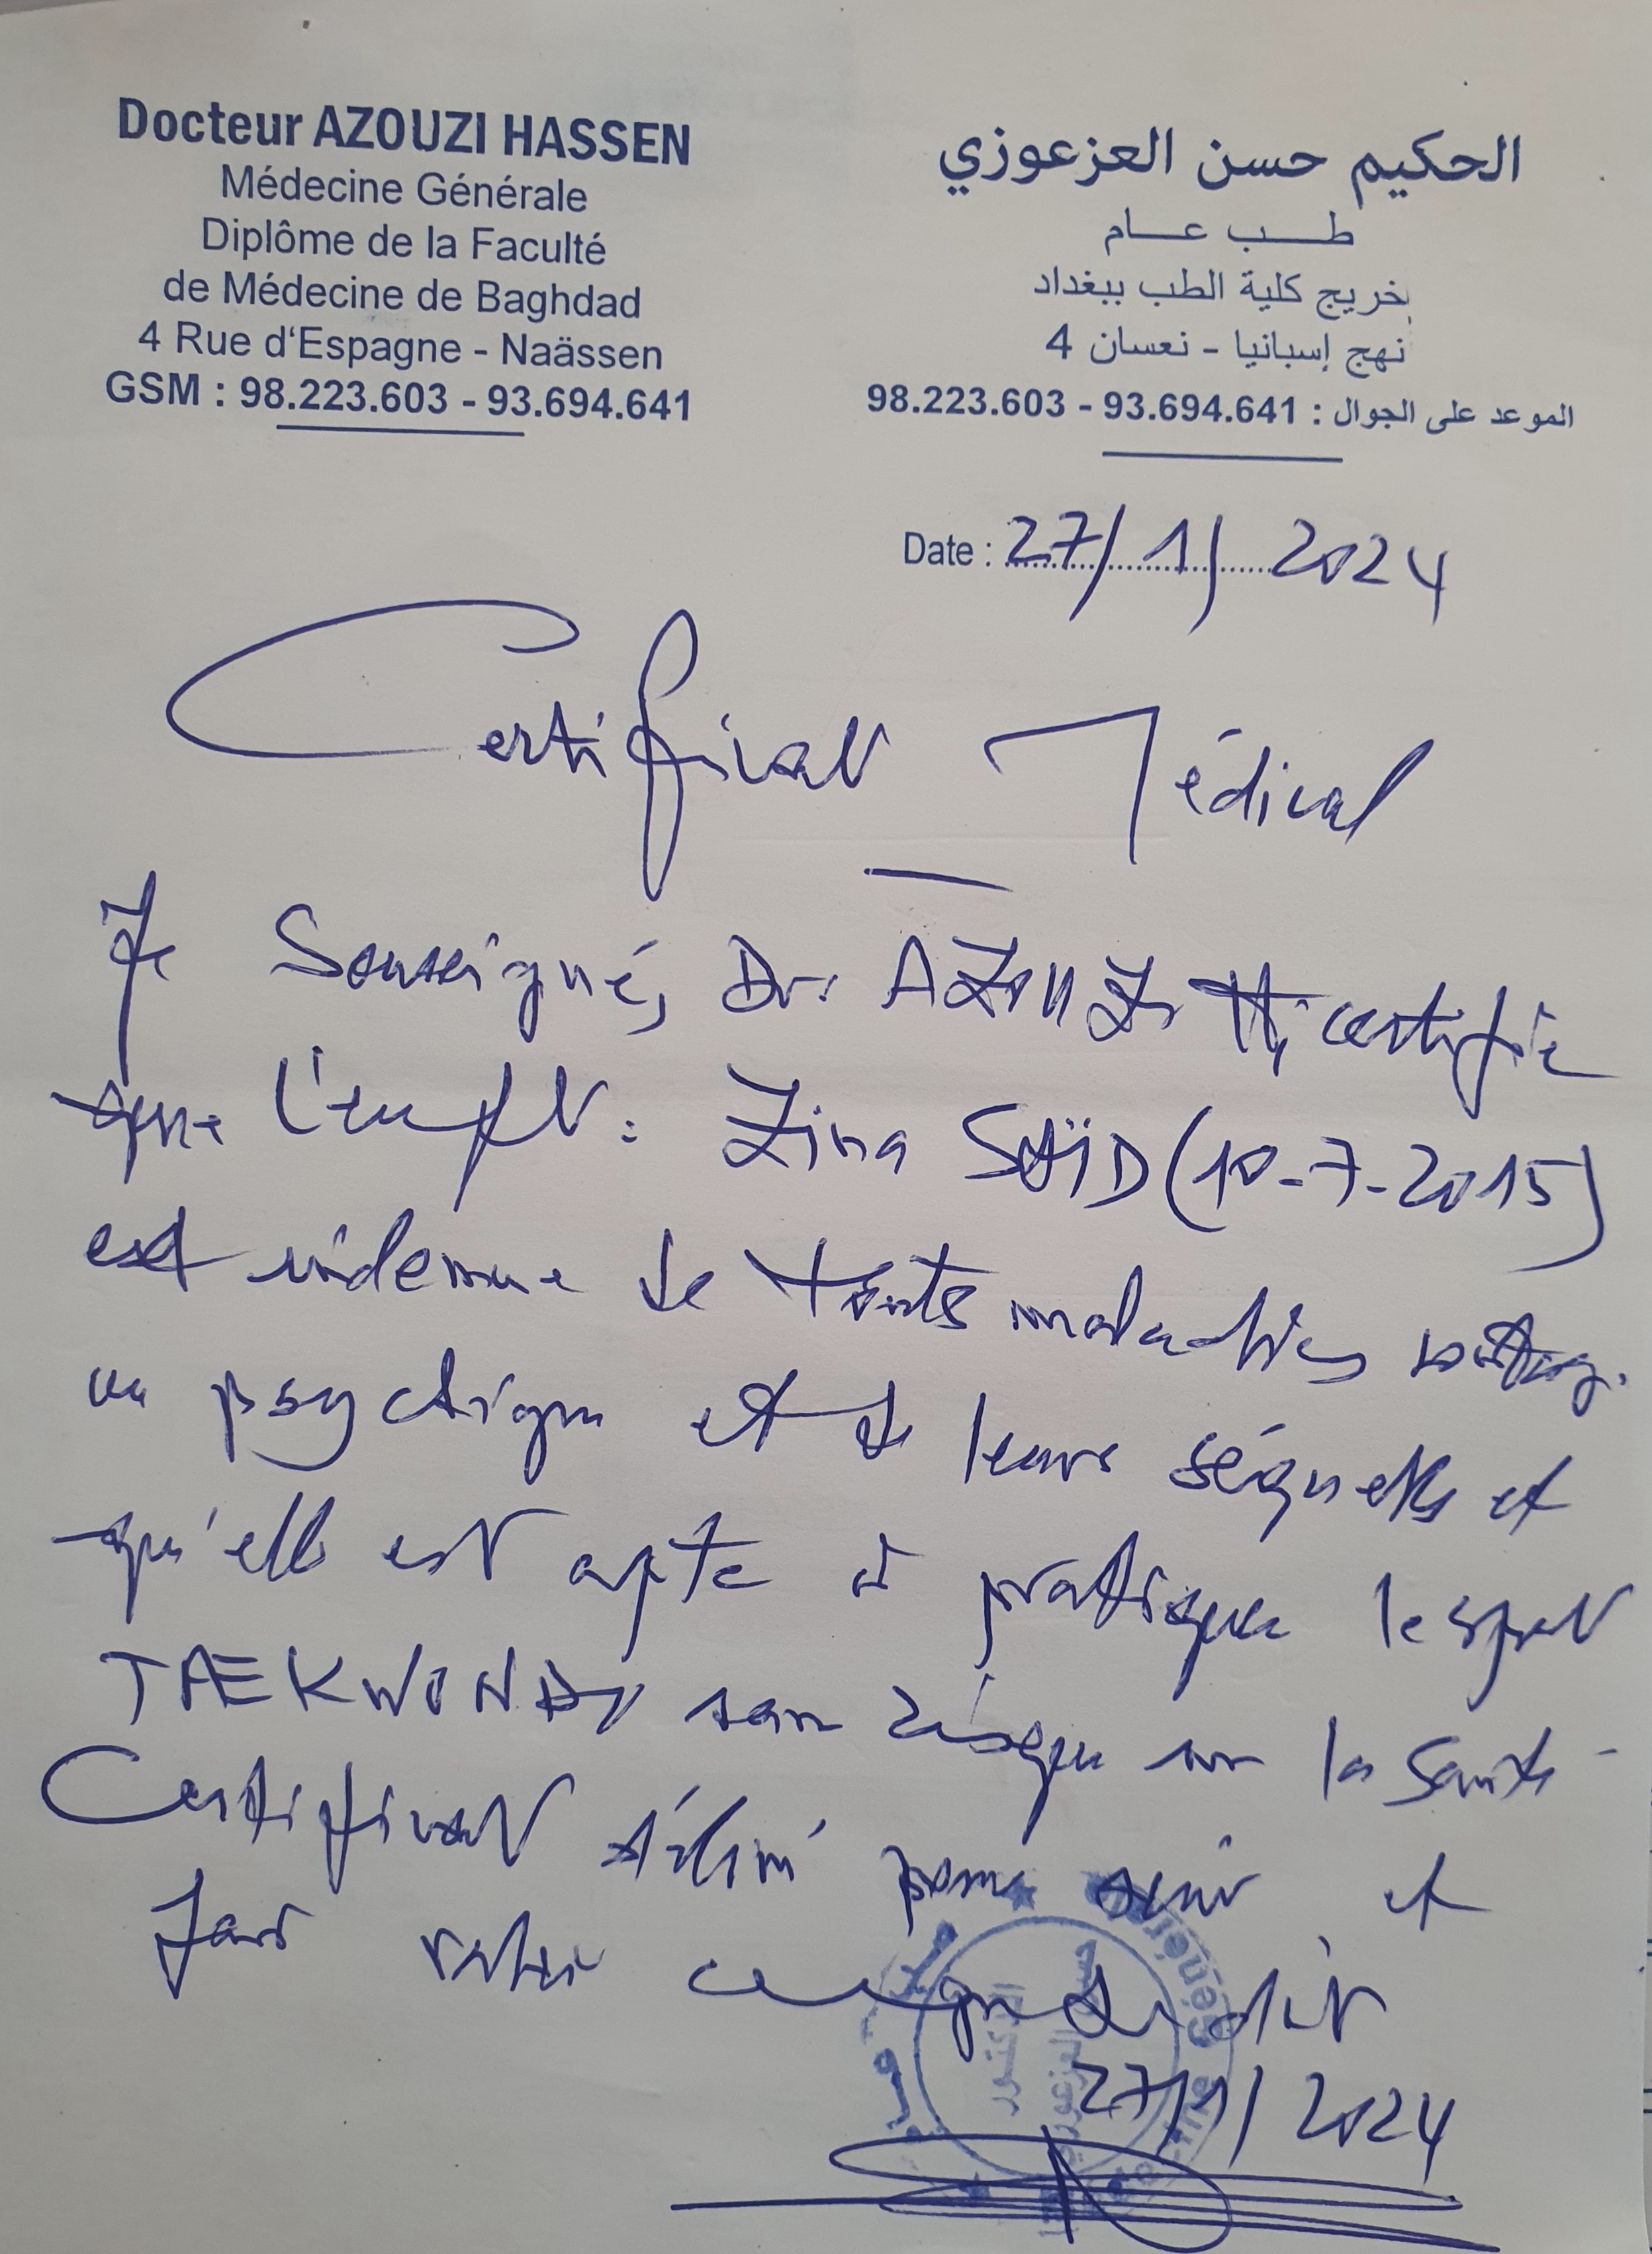 Docteur AZOUZI HASSEN
Médecine Générale
Diplôme de la Faculté
de Médecine de Baghdad
4 Rue d'Espagne - Naässen
GSM : 98.223.603 - 93.694.641
الحكيم حسن العزعوزي
طب عام
خريج كلية الطب ببغداد
4 نهج إسبانيا - نعسان
الموعد على الجوال : 93.694.641 - 98.223.603
Date : 27/1/2024
Certificat Médical
Je Sousseigné, Dr. AZOUZI H, certifie
que l'enfant : Zina SAÏD (10-7-2015)
est indemne de toute maladies
ou psychique et de leurs séquelles et
qu'elle est apte à pratiquer le sport
TAEKWONDO sans risque sur la Santé
Certificat délivré pour servir et
faire valoir ce que de droit
27/1/2024